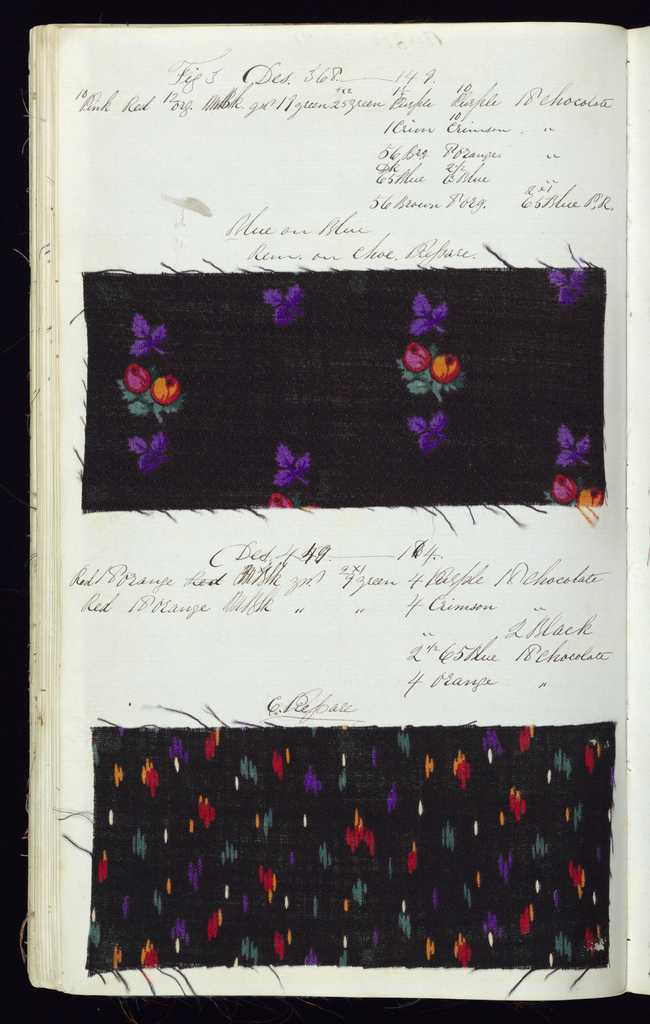 Fig 3 Des. 368. — 149.
10 Pink Red 12 org. Bk. 19 green 4x2 25 green Purple 10 Purple 18 chocolate
1 Crim 10 Crimson. "
56 Brg 8 Orange. "
DK 65 Blue 2 1/2 Blue "
56 Brown 8 org. 2x1 65 Blue P.R.
Blue on Blue
Rem. on Choc. Prepare.
Des. 449. — 164.
Red 18 orange Red Bk 2x1 9 green 4 Purple 18 chocolate
Red 18 orange Bk " " 4 Crimson "
" 2 Black
2 1/2 65 Blue 18 chocolate
4 Orange "
C. Prepare